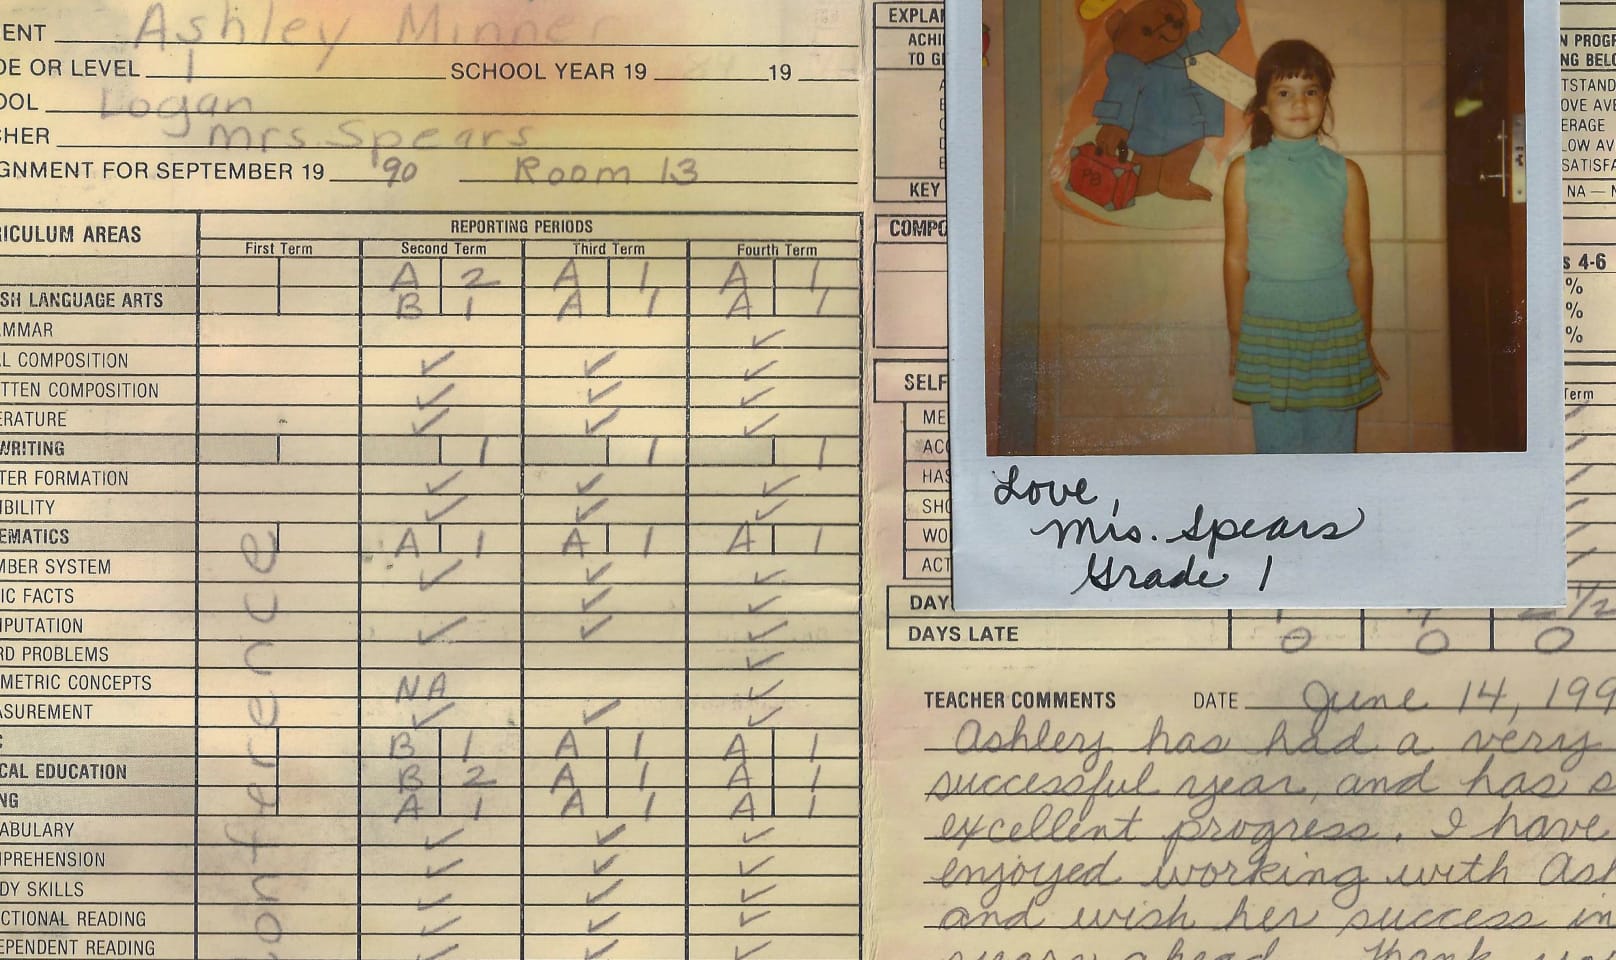 ENT Ashley Minner
DE OR LEVEL 1 SCHOOL YEAR 19 89 19
OOL Logan
CHER Mrs. Spears
GNMENT FOR SEPTEMBER 19 '90 Room 13
RICULUM AREAS
REPORTING PERIODS
First Term Second Term Third Term Fourth Term
A 2 A 1 A 1
SH LANGUAGE ARTS B 1 A 1 A 1
MMAR ✓
L COMPOSITION ✓ ✓ ✓
TTEN COMPOSITION ✓ ✓ ✓
ERATURE ✓ ✓ ✓
WRITING 1 1 1
TER FORMATION ✓ ✓ ✓
IBILITY ✓ ✓ ✓
EMATICS A 1 A 1 A 1
MBER SYSTEM ✓ ✓ ✓
IC FACTS ✓ ✓
PUTATION ✓ ✓ ✓
RD PROBLEMS ✓
METRIC CONCEPTS NA ✓
ASUREMENT ✓ ✓ ✓
C B 1 A 1 A 1
CAL EDUCATION B 2 A 1 A 1
NG A 1 A 1 A 1
ABULARY ✓ ✓ ✓
MPREHENSION ✓ ✓ ✓
DY SKILLS ✓ ✓ ✓
CTIONAL READING ✓ ✓ ✓
EPENDENT READING ✓ ✓ ✓
onference
EXPLA
ACHI
TO G
KEY
COMPO
SELF
ME
ACC
HAS
SHO
WO
ACT
PB
Love,
Mrs. Spears
Grade 1
N PROGR
NG BELO
TSTAND
OVE AVE
ERAGE
LOW AV
SATISFA
NA — N
s 4-6
%
%
%
Term
DAYS 1/2
DAYS LATE 0 0 0
TEACHER COMMENTS DATE June 14, 199
Ashley has had a very
successful year, and has s
excellent progress. I have
enjoyed working with Ash
and wish her success in
years ahead. Thank you